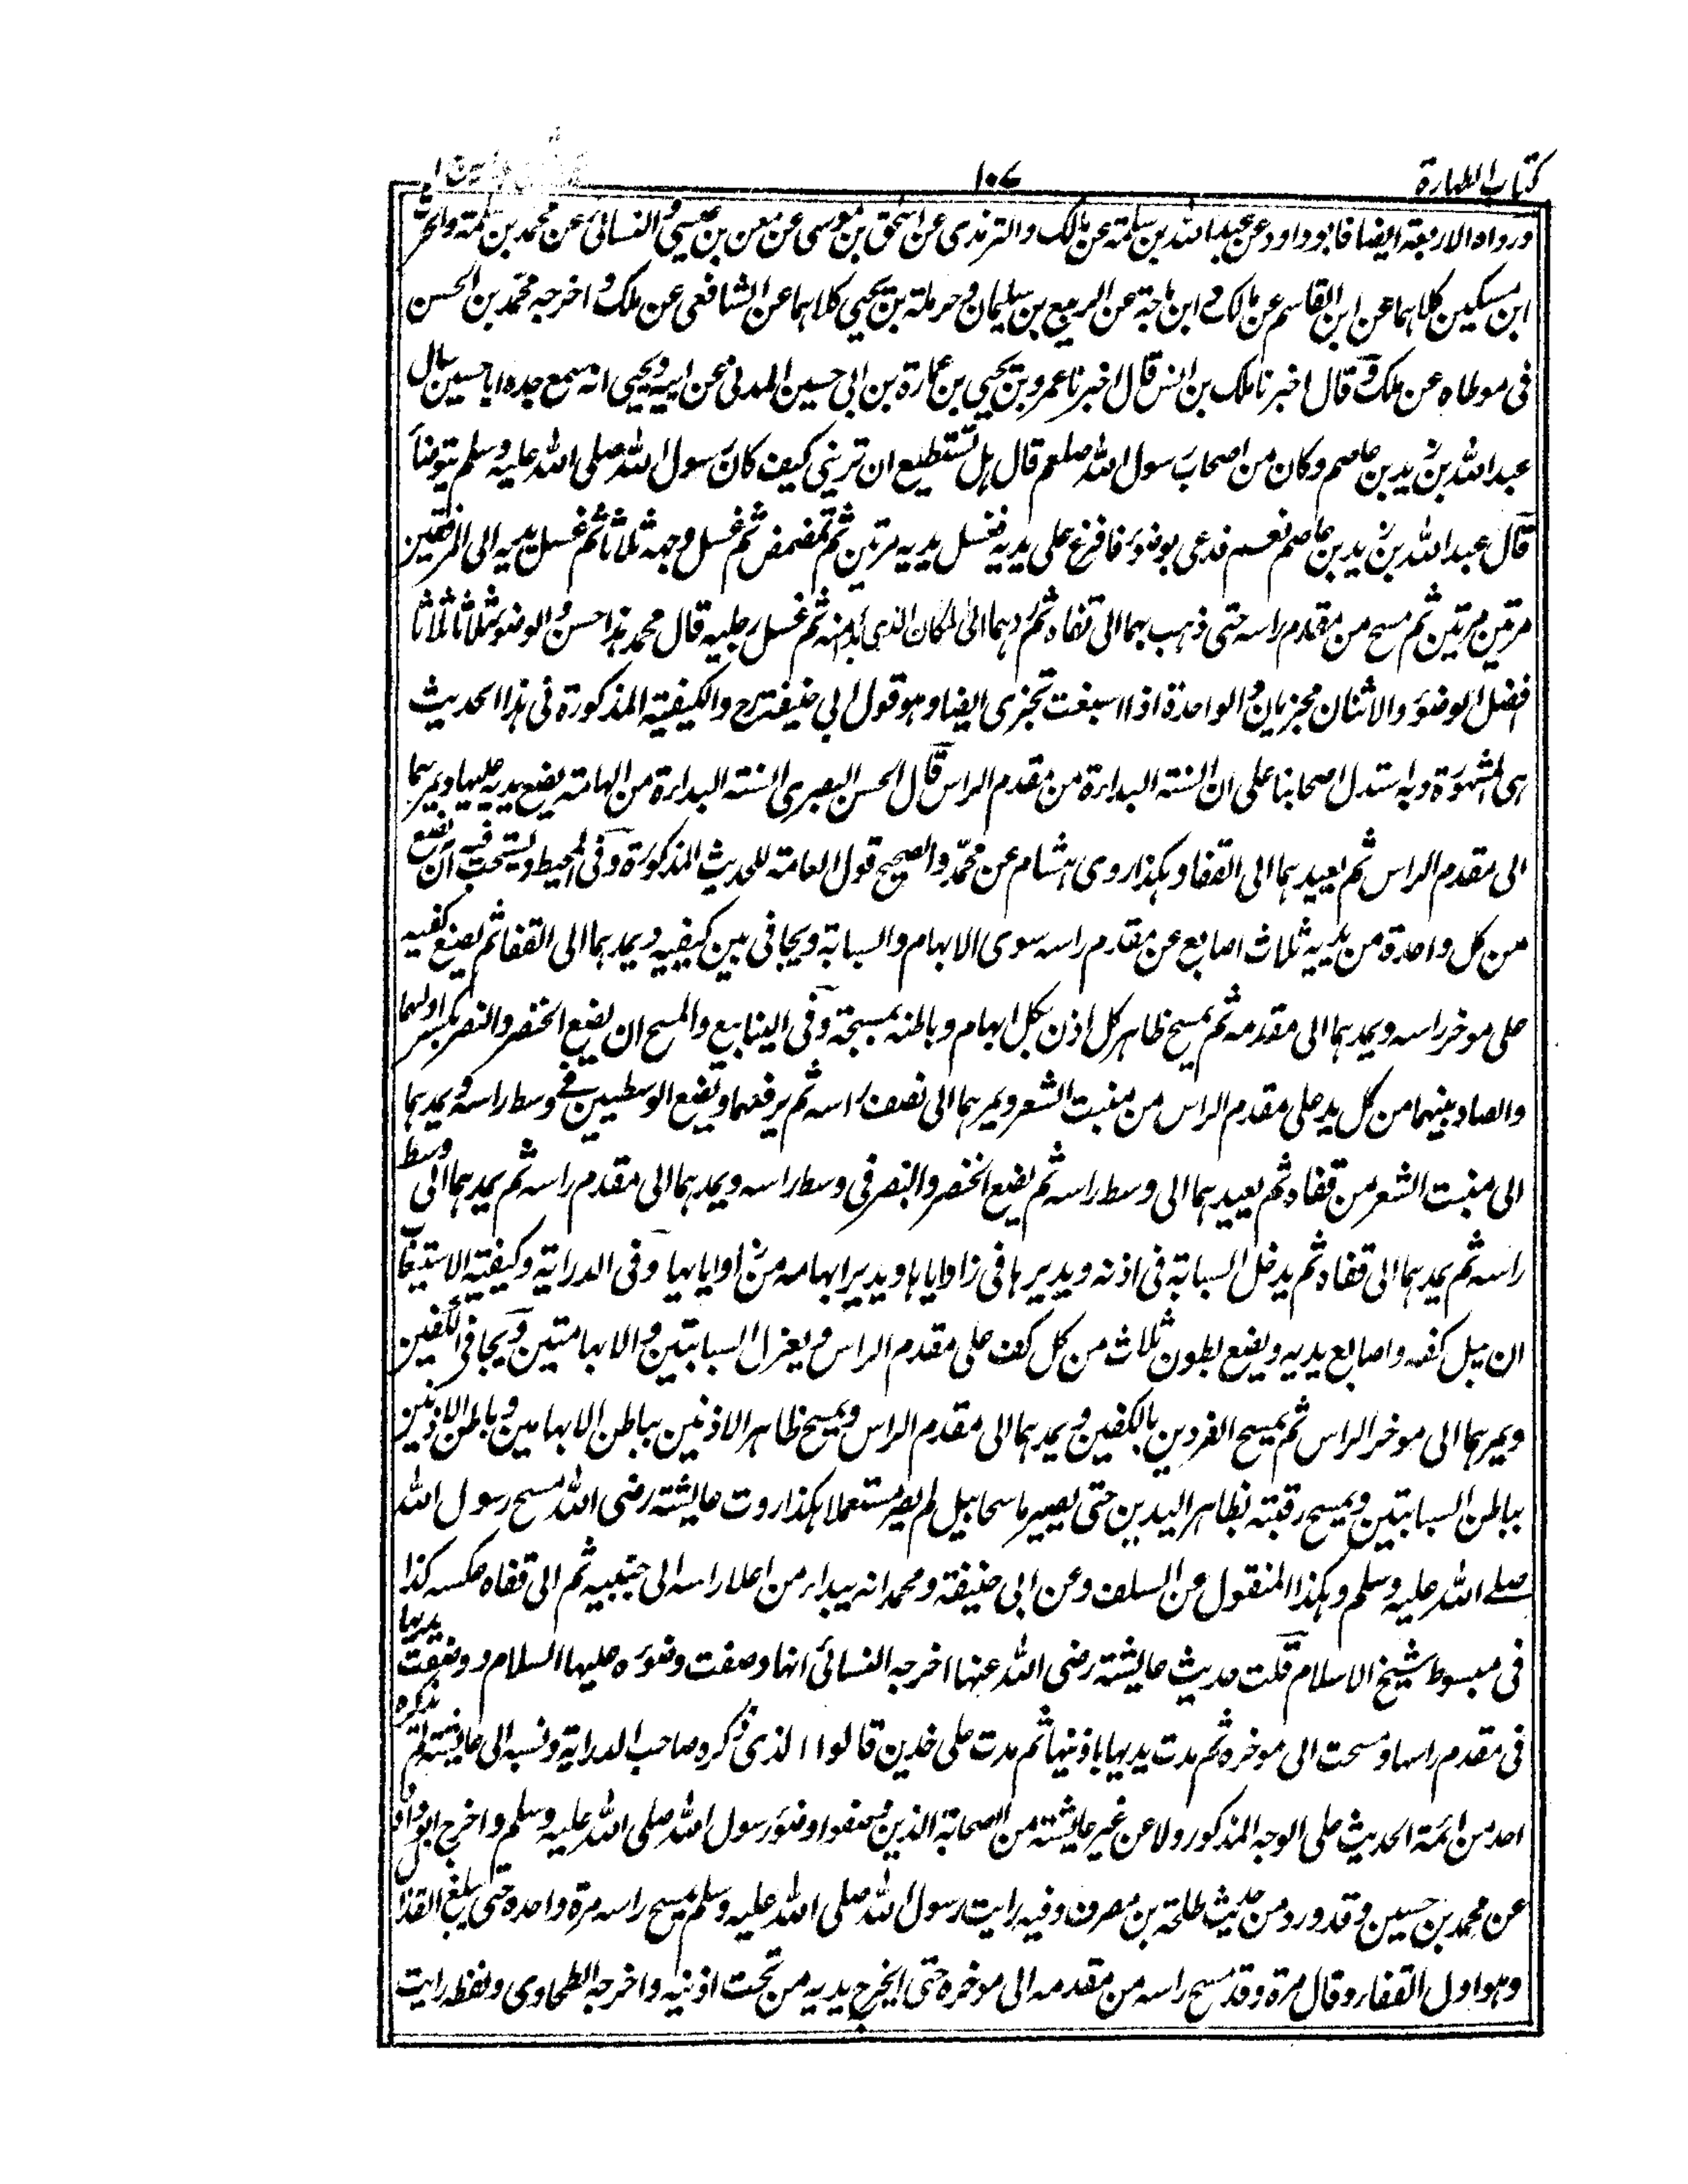 كتاب الطهارة
١٠٧
ورواه الاربعة ايضا فابو داود عن عبد الله بن سلمة عن مالك والترمذى عن اسحق بن موسى عن معن بن عيسى والنسائى عن محمد بن سلمة والحرث
ابن مسكين كلاهما عن ابن القاسم عن مالك و ابن ماجة عن الربيع بن سليمان وحرملة بن يحيى كلاهما عن الشافعى عن ملك واخرجه محمد بن الحسن
فى موطاه عن ملك وقال اخبرنا ملك بن انس قال اخبرنا عمرو بن يحيى بن عمارة بن ابى حسين المدنى عن ابيه يحيى انه سمع جده ابا حسين سال
عبد الله بن زيد بن عاصم وكان من اصحاب رسول الله صلعم قال هل تستطيع ان ترينى كيف كان رسول الله صلى الله عليه وسلم يتوضأ
قال عبد الله بن زيد بن عاصم نعم فدعى بوضوء فافرغ على يديه فغسل يديه مرتين ثم تمضمض ثم غسل وجهه ثلاثا ثم غسل يديه الى المرفقين
مرتين مرتين ثم مسح من مقدم راسه حتى ذهب بهما الى قفاه ثم ردهما الى المكان الذى بدأ منه ثم غسل رجليه قال محمد هذا احسن الوضوء ثلاثا ثلاثا
افضل الوضوء والاثنان مجزيان والواحدة اذا اسبغت تجزى ايضا وهو قول ابى حنيفة رح والكيفية المذكورة فى هذا الحديث
هى المشهورة وبه استدل اصحابنا على ان السنة البداءة من مقدم الراس قال الحسن البصرى السنة البداءة من الهامة يضع يديه عليها ويمر بهما
الى مقدم الراس ثم يعيدهما الى القفا وهكذا روى هشام عن محمد والصحيح قول العامة للحديث المذكورة وفى المحيط ويستحب فيه ان يضع
من كل واحدة من يديه ثلاث اصابع عن مقدم راسه سوى الابهام والسبابة ويجافى بين كيفيه ويمدهما الى القفا ثم يضع كفيه
على موخر راسه ويمدهما الى مقدمه ثم يمسح ظاهر كل اذن بكل ابهام وباطنه بمسبحة وفى الينابيع والمسح ان يضع الخنصر والنصر بكسر اولهما
والصاد بينهما من كل يد على مقدم الراس من منبت الشعر ويمرهما الى نصف راسه ثم يرفعهما ويضع الوسطيين فى وسط راسه ويمدهما
الى منبت الشعر من قفاه ثم يعيدهما الى وسط راسه ثم يضع الخنصر والبنصر فى وسط راسه ويمدهما الى مقدم راسه ثم يمدهما الى وسط
راسه ثم يمدهما الى قفاه ثم يدخل السبابة فى اذنه ويديرها فى زاوايا ها ويدير ابهامه من زاوايا بهيا وفى الدراية وكيفية الاستيعاب
ان يبل كفه واصابع يديه ويضع بطون ثلاث من كل كف على مقدم الراس ويعزل السبابتين والابهامتين ويجافى الكفين
ويمرهما الى موخر الراس ثم يمسح الفردين بالكفين ويمدهما الى مقدم الراس ويمسح ظاهر الاذنين بباطن الابهامين وباطن الاذنين
بباطن السبابتين ويمسح رقبته بظاهر اليدين حتى يصير ماسحا ببل لم يصر مستعملا هكذا روت عايشة رضى الله مسح رسول الله
صلى الله عليه وسلم وهكذا المنقول عن السلف وعن ابى حنيفة ومحمد انه يبداء من اعلا راسه الى جنبيه ثم الى قفاه عكسه كذا
فى مبسوط شيخ الاسلام قلت حديث عايشة رضى الله عنها اخرجه النسائى انها وصفت وضوءه عليها السلام ووضعت يديها
فى مقدم راسها ومسحت الى موخره ثم مدت يديها باذنيها ثم مدت على خدين قالوا الذى ذكره صاحب الدراية ونسبه الى عايشة لم يذكره
احد من ائمة الحديث على الوجه المذكور ولا عن غير عايشة من الصحابة الذين وصفوا وضوء رسول الله صلى الله عليه وسلم واخرج ابو داود
عن محمد بن حسين وقد ورد من حديث طلحة بن مصرف وفيه رايت رسول الله صلى الله عليه وسلم يمسح راسه مرة واحدة حتى يبلغ القذال
وهو اول القفا وقال مرة وقد مسح راسه من مقدمه الى موخره حتى يخرج يديه من تحت اذنيه واخرجه الطحاوى ولفظه رايت